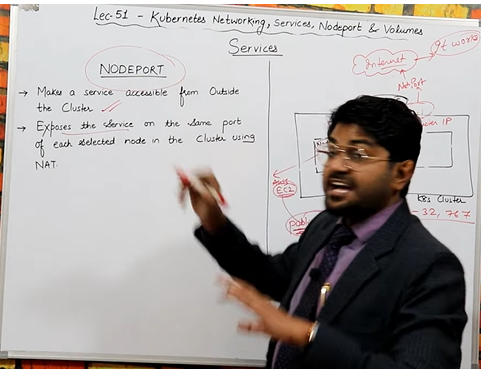 Lec-51 - Kubernetes Networking, Services, Nodeport & Volumes
Services
NODEPORT
→ Makes a service accessible from Outside
the Cluster
→ Exposes the service on the same port
of each selected node in the Cluster using
NAT.
Internet
gt works
EC2
K8s Cluster
- 32,767